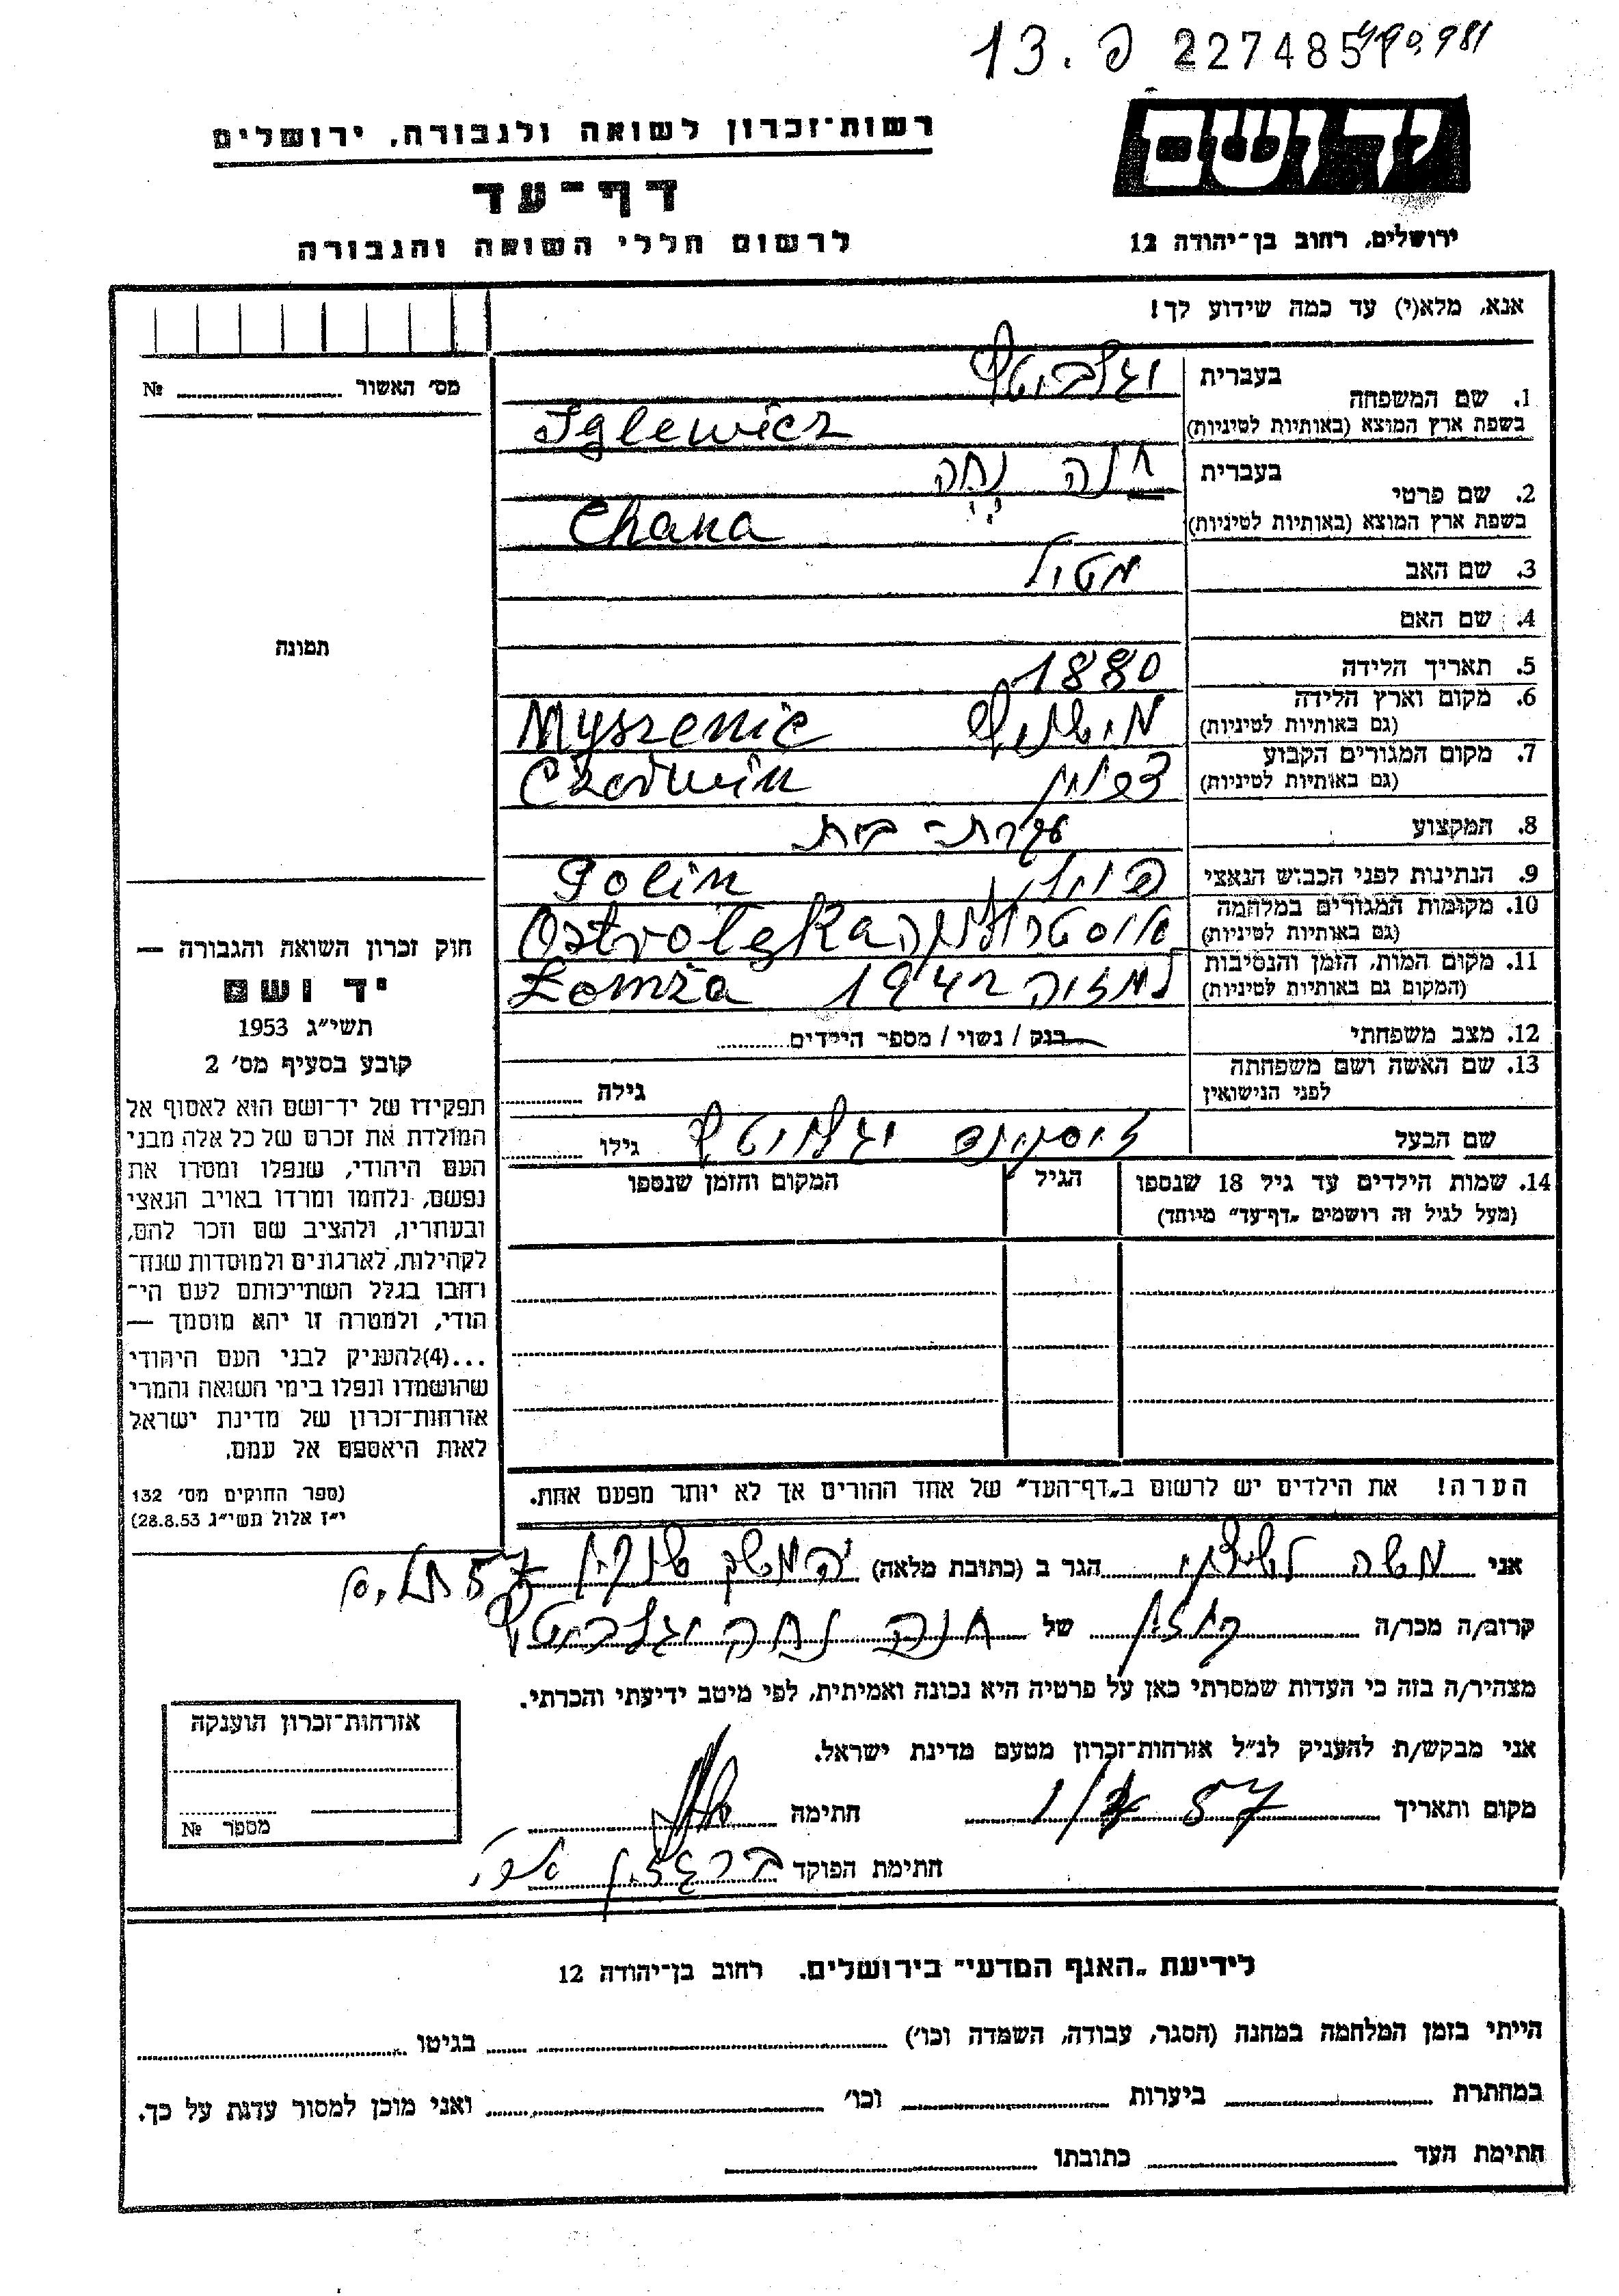 13. פ 227485 490981
ידושם
רשות־זכרון לשואה ולגבורה, ירושלים
דף־עד
לרשום חללי השואה והגבורה
ירושלים, רחוב בן־יהודה 12
אנא, מלא(י) עד כמה שידוע לך!
מס' האשור № 
1. שם המשפחה בעברית
בשפת ארץ המוצא (באותיות לטיניות) Iglewicz
2. שם פרטי בעברית חנה
בשפת ארץ המוצא (באותיות לטיניות) Chana
3. שם האב
4. שם האם
5. תאריך הלידה 1880
6. מקום וארץ הלידה
(גם באותיות לטיניות) Myszenic
7. מקום המגורים הקבוע
(גם באותיות לטיניות) Czerwin
8. המקצוע עקרת-בית
9. הנתינות לפני הכבוש הנאצי פולין Polin
10. מקומות המגורים במלחמה
(גם באותיות לטיניות) אוסטרולנקה Ostrolęka
11. מקום המות, הזמן והנסיבות
(המקום גם באותיות לטיניות) 1942 Łomża
12. מצב משפחתי רנק / נשוי / מספר הילדים
13. שם האשה ושם משפחתה
לפני הנישואין גילה
שם הבעל גילו
14. שמות הילדים עד גיל 18 שנספו הגיל המקום והזמן שנספו
(מעל לגיל זה רושמים „דף־עד" מיוחד)
הערה! את הילדים יש לרשום ב„דף־העד" של אחד ההורים אך לא יותר מפעם אחת.
תמונה
חוק זכרון השואה והגבורה —
יד ושם
תשי״ג 1953
קובע בסעיף מס' 2
תפקידו של יד־ושם הוא לאסוף אל
המולדת את זכרם של כל אלה מבני
העם היהודי, שנפלו ומסרו את
נפשם, נלחמו ומרדו באויב הנאצי
ובעוזריו, ולהציב שם וזכר להם,
לקהילות, לארגונים ולמוסדות שנח־
רחבו בגלל השתייכותם לעם הי־
הודי, ולמטרה זו יהא מוסמך —
...(4)להעניק לבני העם היהודי
שהושמדו ונפלו בימי השואה והמרי
אזרחות־זכרון של מדינת ישראל
לאות היאספם אל עמם.
(ספר החוקים מס' 132
י״ז אלול תשי״ג 28.8.53)
אני משה הגר ב (כתובת מלאה)
קרוב/ה מכר/ה של חנה
מצהיר/ה בזה כי העדות שמסרתי כאן על פרטיה היא נכונה ואמיתית, לפי מיטב ידיעתי והכרתי.
אני מבקש/ת להעניק לנ״ל אזרחות־זכרון מטעם מדינת ישראל.
מקום ותאריך 57 חתימה
חתימת הפוקד
אזרחות־זכרון הוענקה
מספר №
לידיעת „האגף המדעי" בירושלים. רחוב בן־יהודה 12
הייתי בזמן המלחמה במחנה (הסגר, עבודה, השמדה וכו') בגיטו
במחתרת ביערות וכו' ואני מוכן למסור עדות על כך.
חתימת העד כתובתו